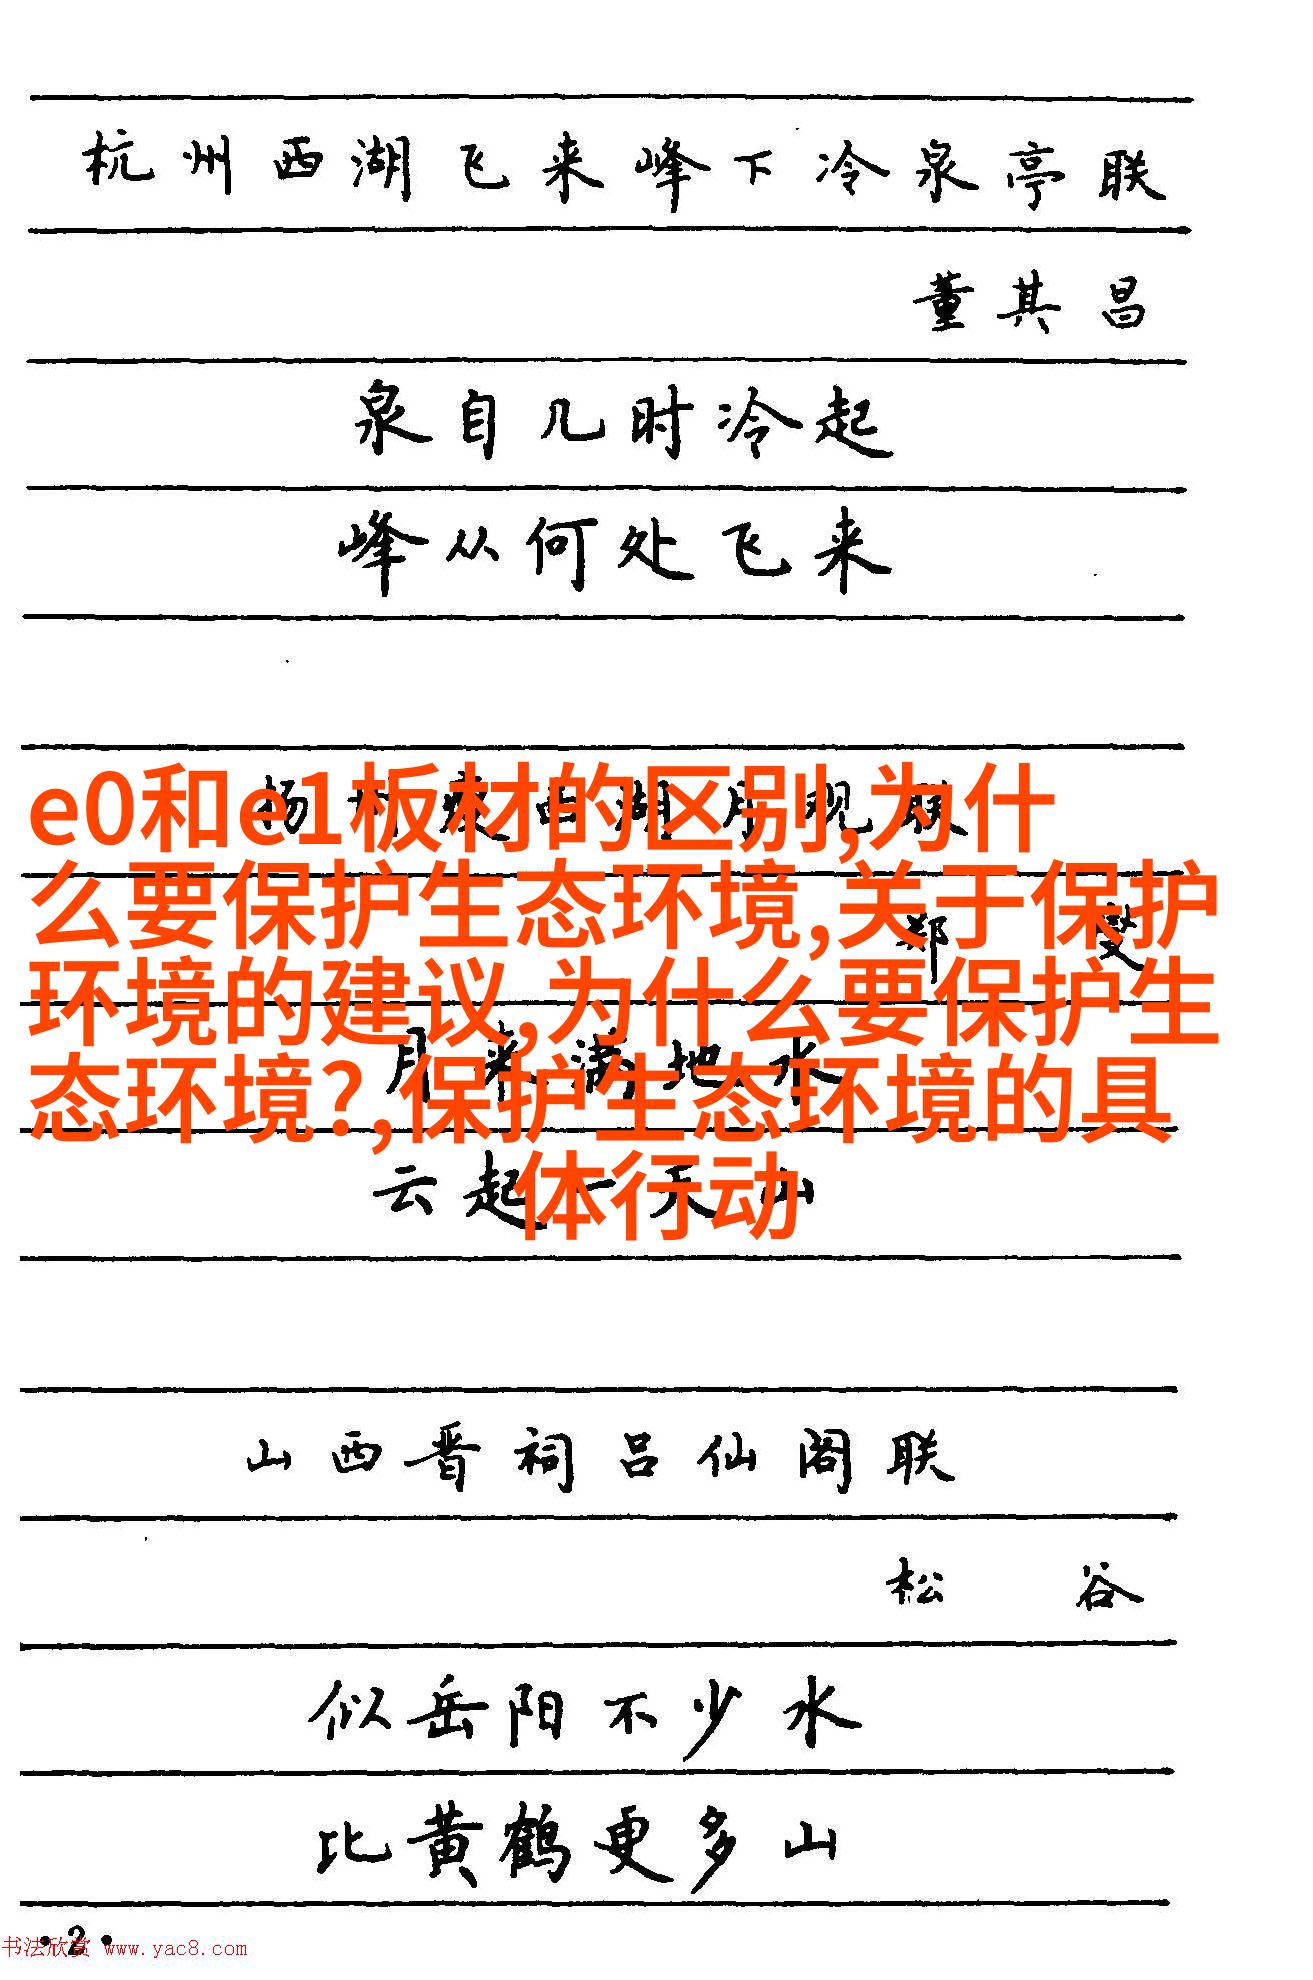 杭州西湖飞来峰下冷泉亭联
董其昌
泉自几时冷起
峰从何处飞来
杨州瘦西湖月观联
e0和e1板材的区别,为什
么要保护生态环境,关于保护
郑燮
环境的建议,为什么要保护生
月来满地水
态环境?,保护生态环境的具
云起一天山
体行动
山西晋祠吕仙阁联
松谷
似岳阳不少水
比黄鹤更多山
·2·
书法欣赏 www.yac8.com